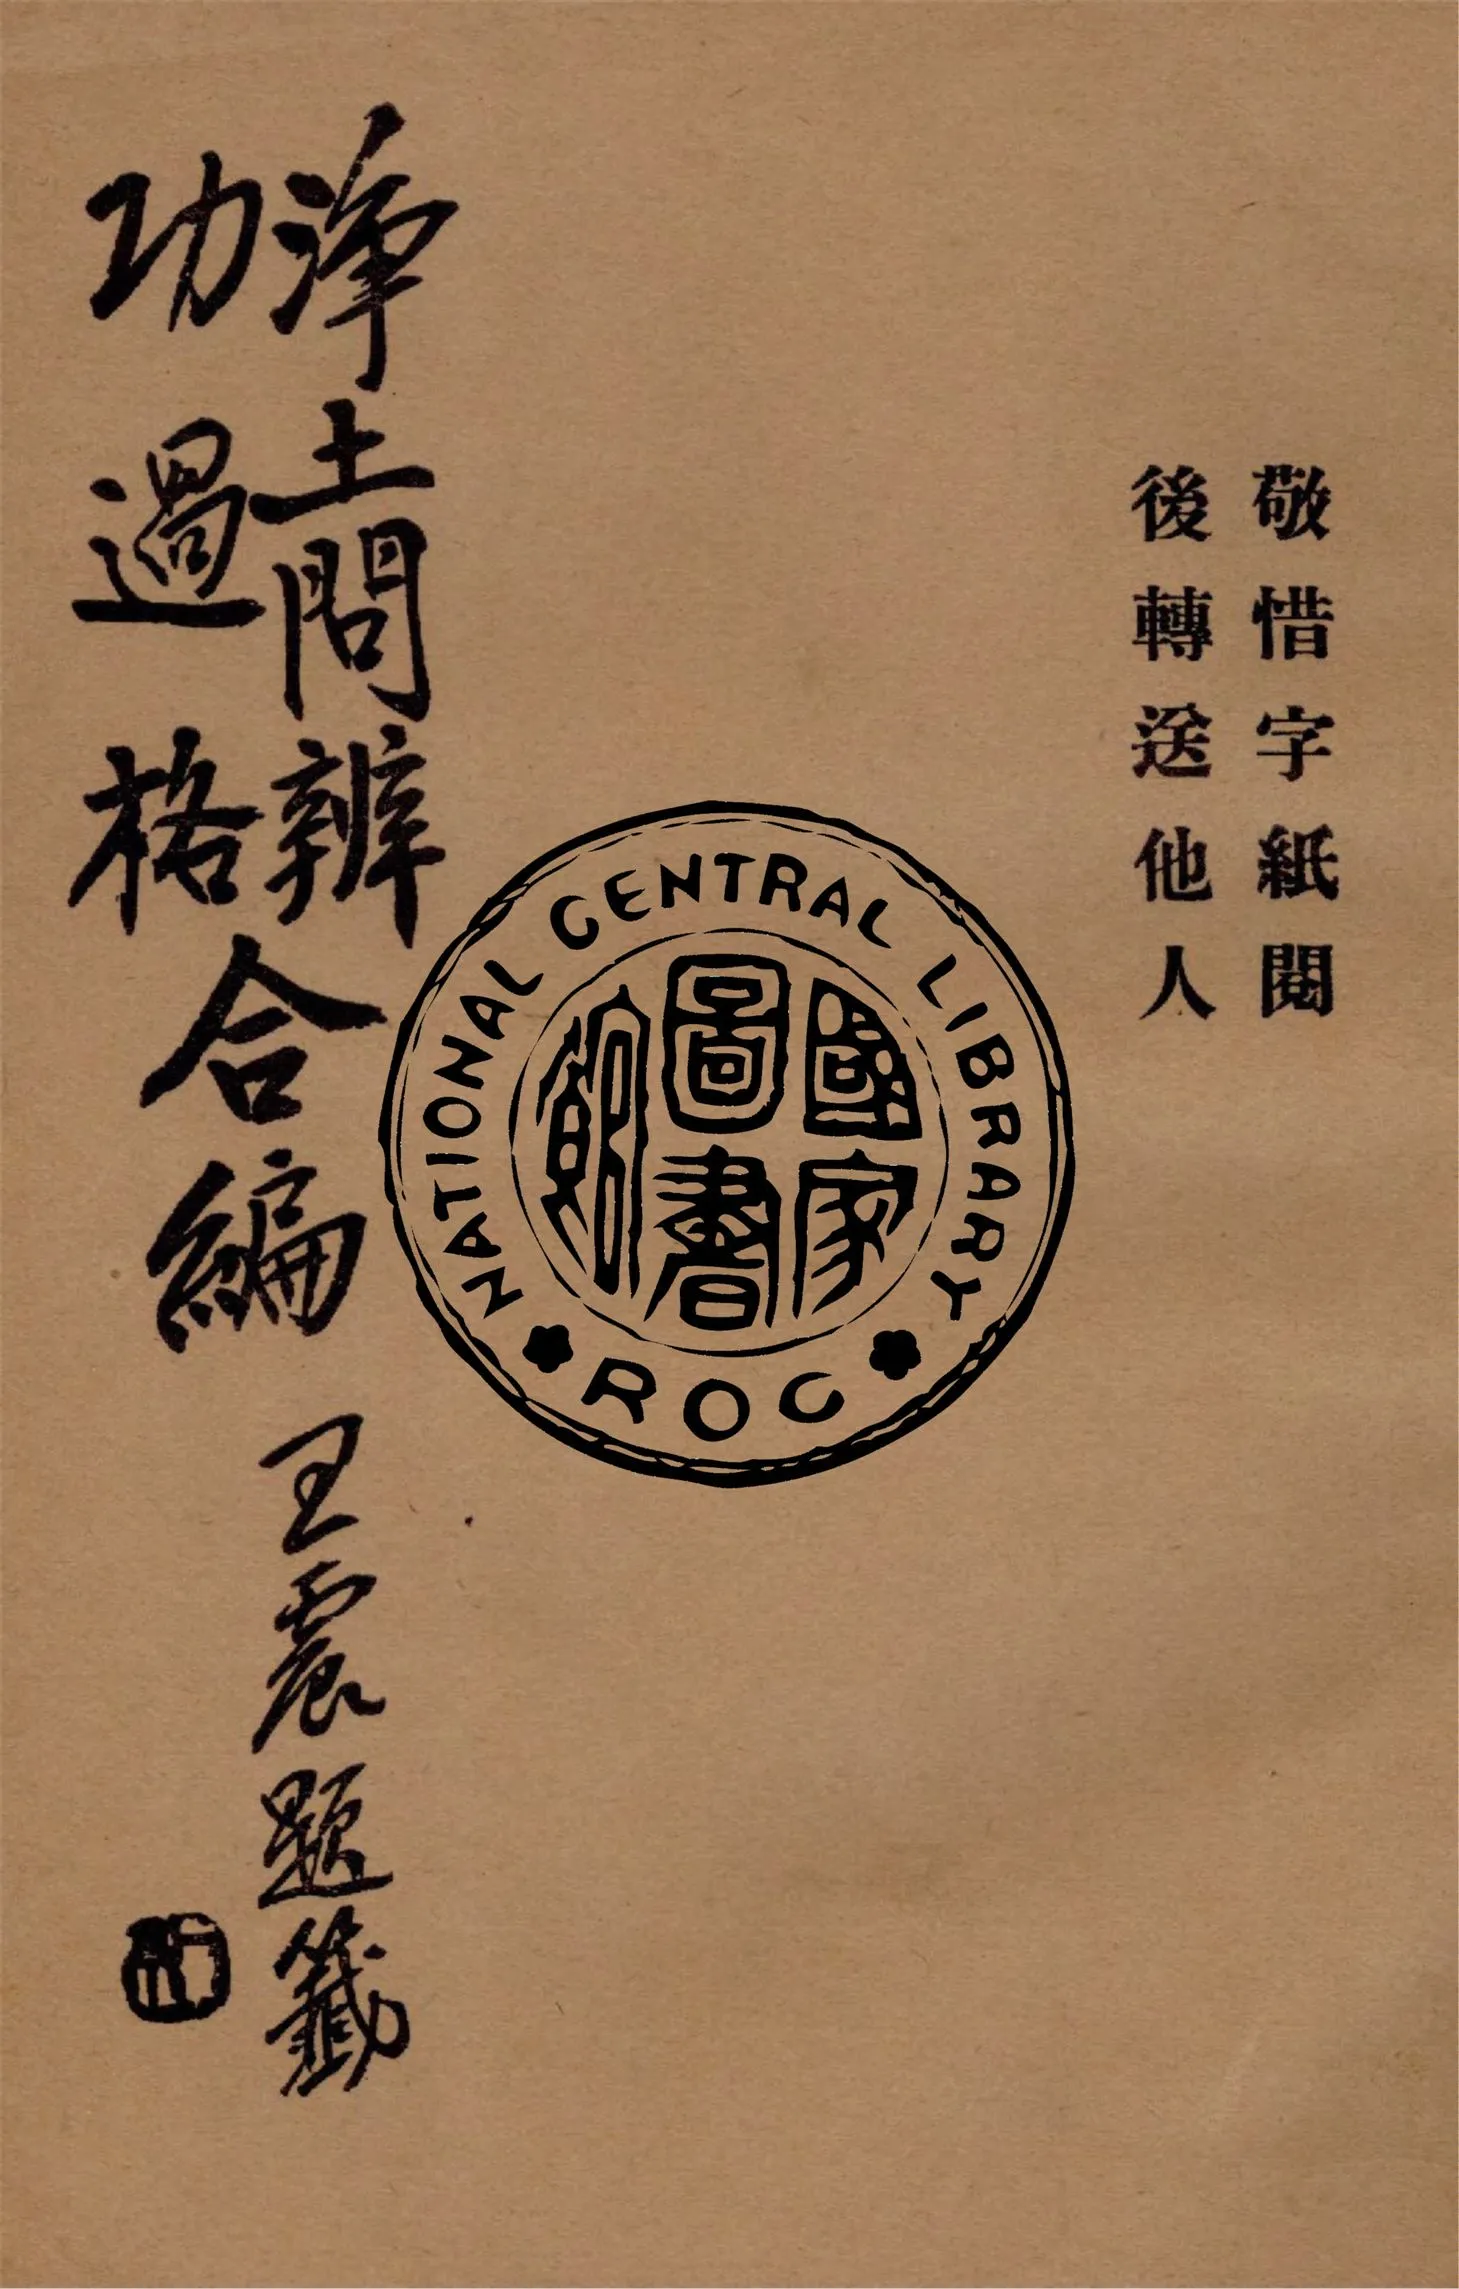 敬惜字紙閱
後轉送他人
淨土問辨
功過格
合編
王震題籤
NATIONAL CENTRAL LIBRARY
ROC
國家
圖書
館